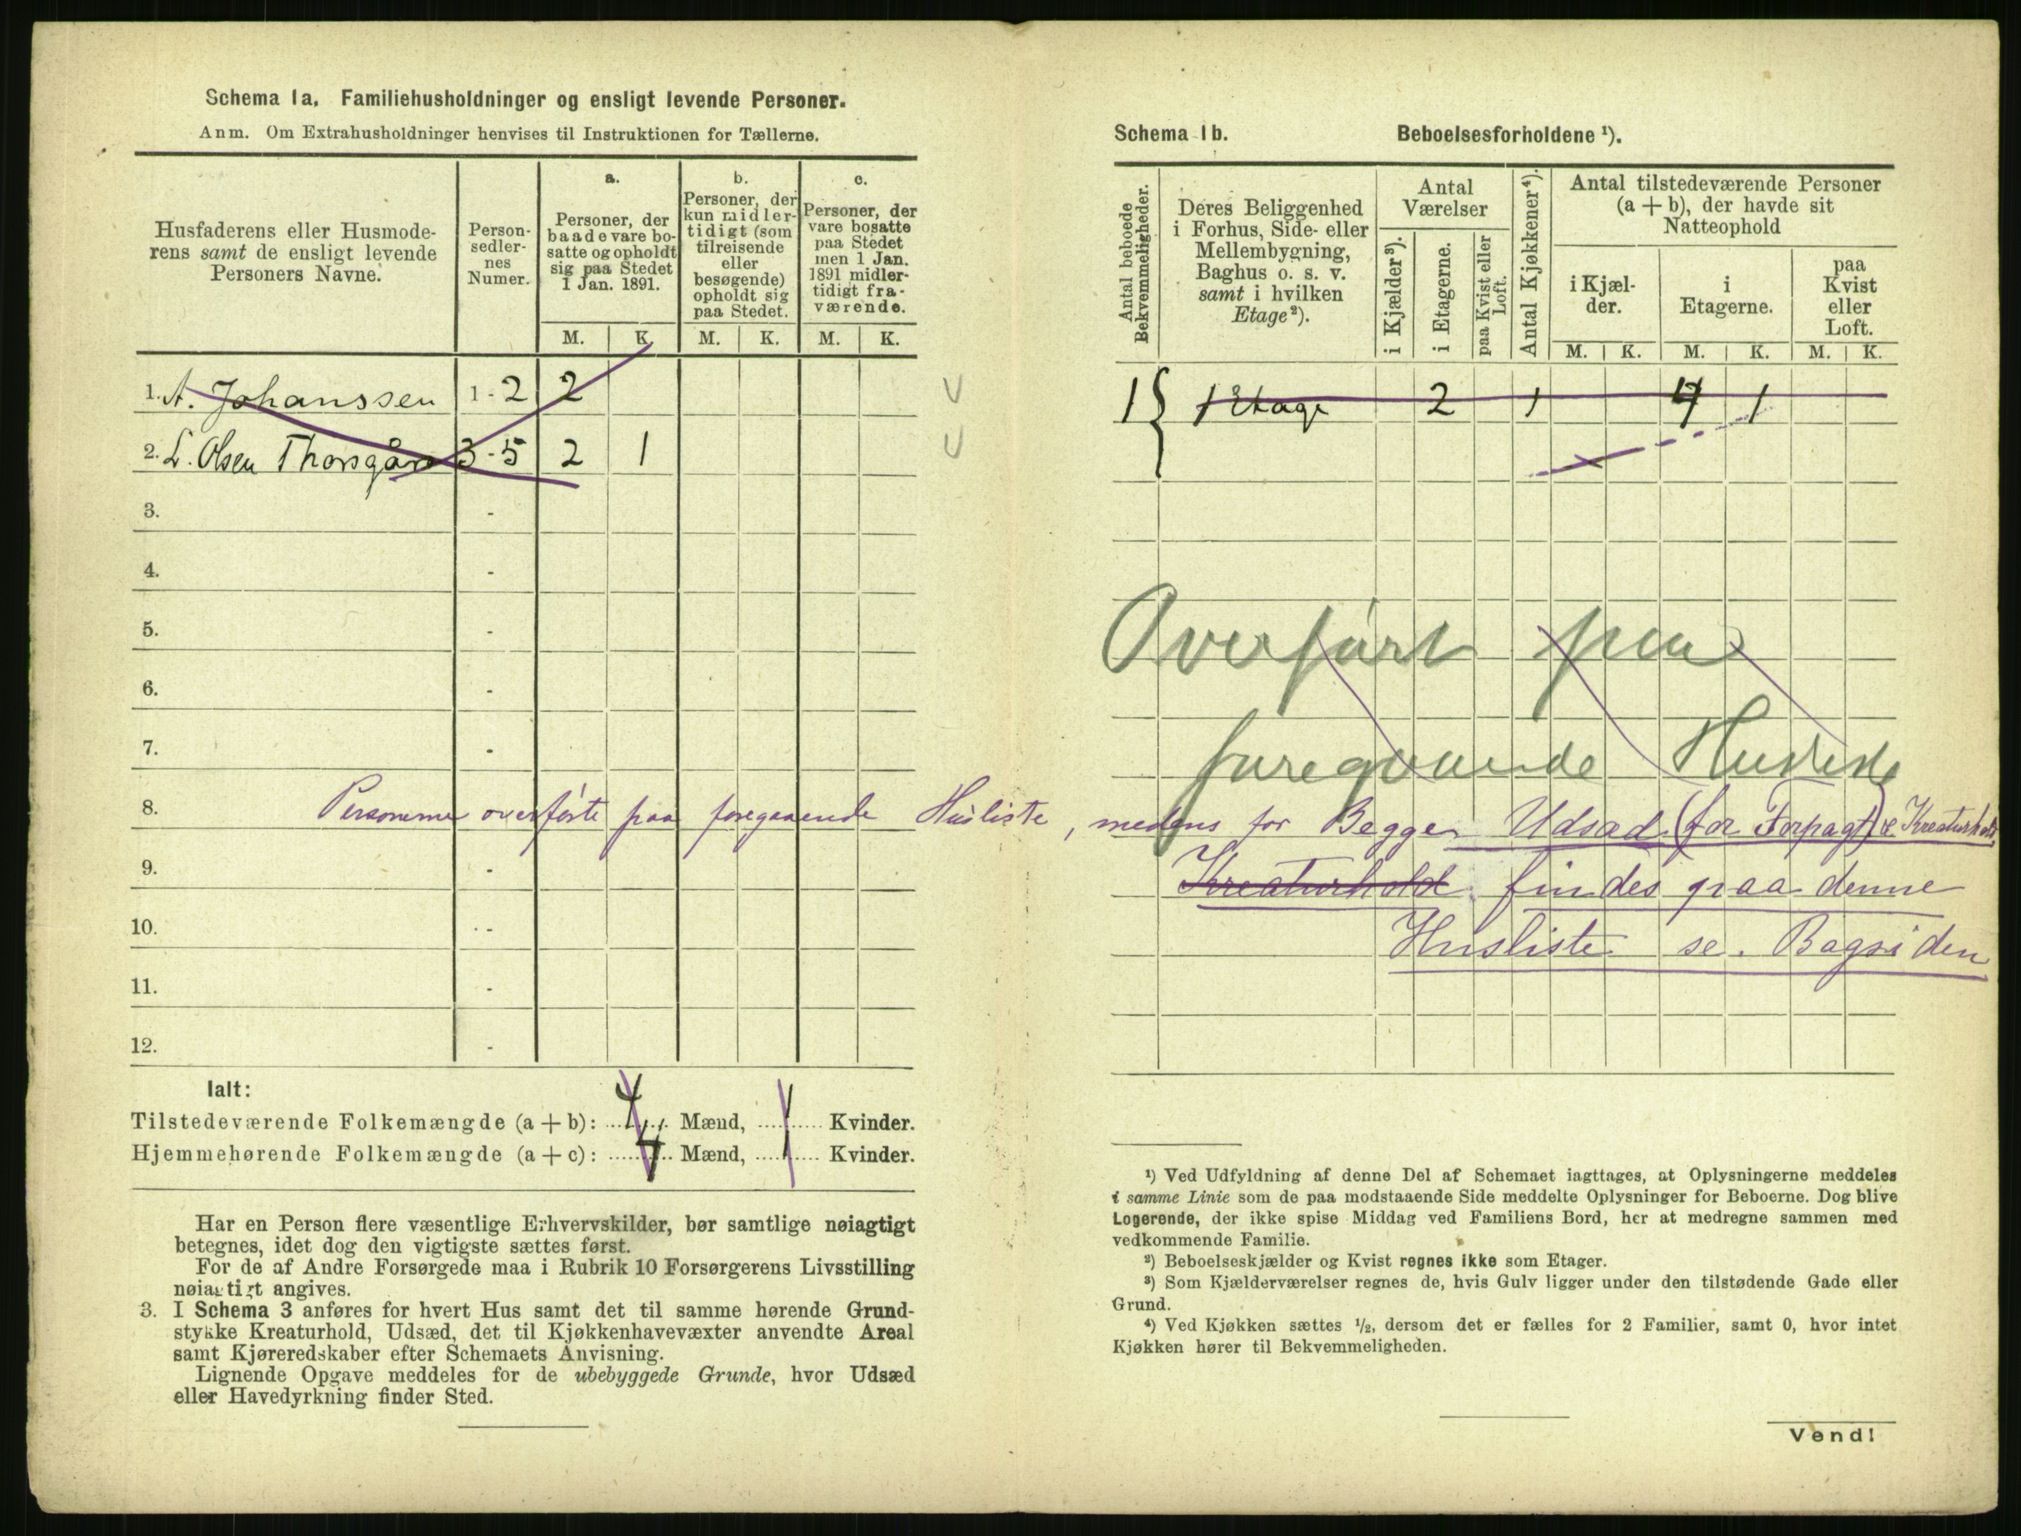 Schema 1a. Familiehusholdninger og ensligt levende Personer.
Anm. Om Extrahusholdninger henvises til Instruktionen for Tællerne.
Husfaderens eller Husmode-
rens samt de ensligt levende
Personers Navne.
Person-
sedler-
nes
Numer.
a.
Personer, der
baade vare bo-
satte og opholdt
sig paa Stedet
1 Jan. 1891.
b.
Personer, der
kun midler-
tidigt (som
tilreisende
eller
besøgende)
opholdt sig
paa Stedet.
c.
Personer, der
vare bosatte
paa Stedet
men 1 Jan.
1891 midler-
tidigt fra-
værende.
M. K. M. K. M. K.
1. A. Johanssen 1-2 2
2. L. Olsen Thorsgård 3-5 2 1
3. -
4. -
5. -
6. -
7. -
8. Personerne overførte paa foregaaende Husliste,
9. -
10. -
11. -
12. -
Ialt:
Tilstedeværende Folkemængde (a + b): 4 Mænd, 1 Kvinder.
Hjemmehørende Folkemængde (a + c): 4 Mænd, 1 Kvinder.
Har en Person flere væsentlige Erhvervskilder, bør samtlige nøiagtigt
betegnes, idet dog den vigtigste sættes først.
For de af Andre Forsørgede maa i Rubrik 10 Forsørgerens Livsstilling
nøiagtigt angives.
3. I Schema 3 anføres for hvert Hus samt det til samme hørende Grund-
stykke Kreaturhold, Udsæd, det til Kjøkkenhavevæxter anvendte Areal
samt Kjøreredskaber efter Schemaets Anvisning.
Lignende Opgave meddeles for de ubebyggede Grunde, hvor Udsæd
eller Havedyrkning finder Sted.
Schema 1b. Beboelsesforholdene ¹).
Antal beboede
Bekvemmeligheder.
Deres Beliggenhed
i Forhus, Side- eller
Mellembygning,
Baghus o. s. v.
samt i hvilken
Etage²).
Antal
Værelser
i Kjælder³).
i Etagerne.
paa Kvist eller
Loft.
Antal Kjøkkener⁴).
Antal tilstedeværende Personer
(a + b), der havde sit
Natteophold
i Kjæl-
der.
i
Etagerne.
paa
Kvist
eller
Loft.
M. K. M. K. M. K.
1 { 1 Etage 2 1 4 1
Overført paa
foregaaende Husliste
medens for Begge Udsæd (for Forpagt) & Kreaturhold
Kreaturhold findes paa denne
Husliste se. Bagsiden
¹) Ved Udfyldning af denne Del af Schemaet iagttages, at Oplysningerne meddeles
i samme Linie som de paa modstaaende Side meddelte Oplysninger for Beboerne. Dog blive
Logerende, der ikke spise Middag ved Familiens Bord, her at medregne sammen med
vedkommende Familie.
²) Beboelseskjælder og Kvist regnes ikke som Etager.
³) Som Kjælderværelser regnes de, hvis Gulv ligger under den tilstødende Gade eller
Grund.
⁴) Ved Kjøkken sættes ½, dersom det er fælles for 2 Familier, samt 0, hvor intet
Kjøkken hører til Bekvemmeligheden.
Vend!